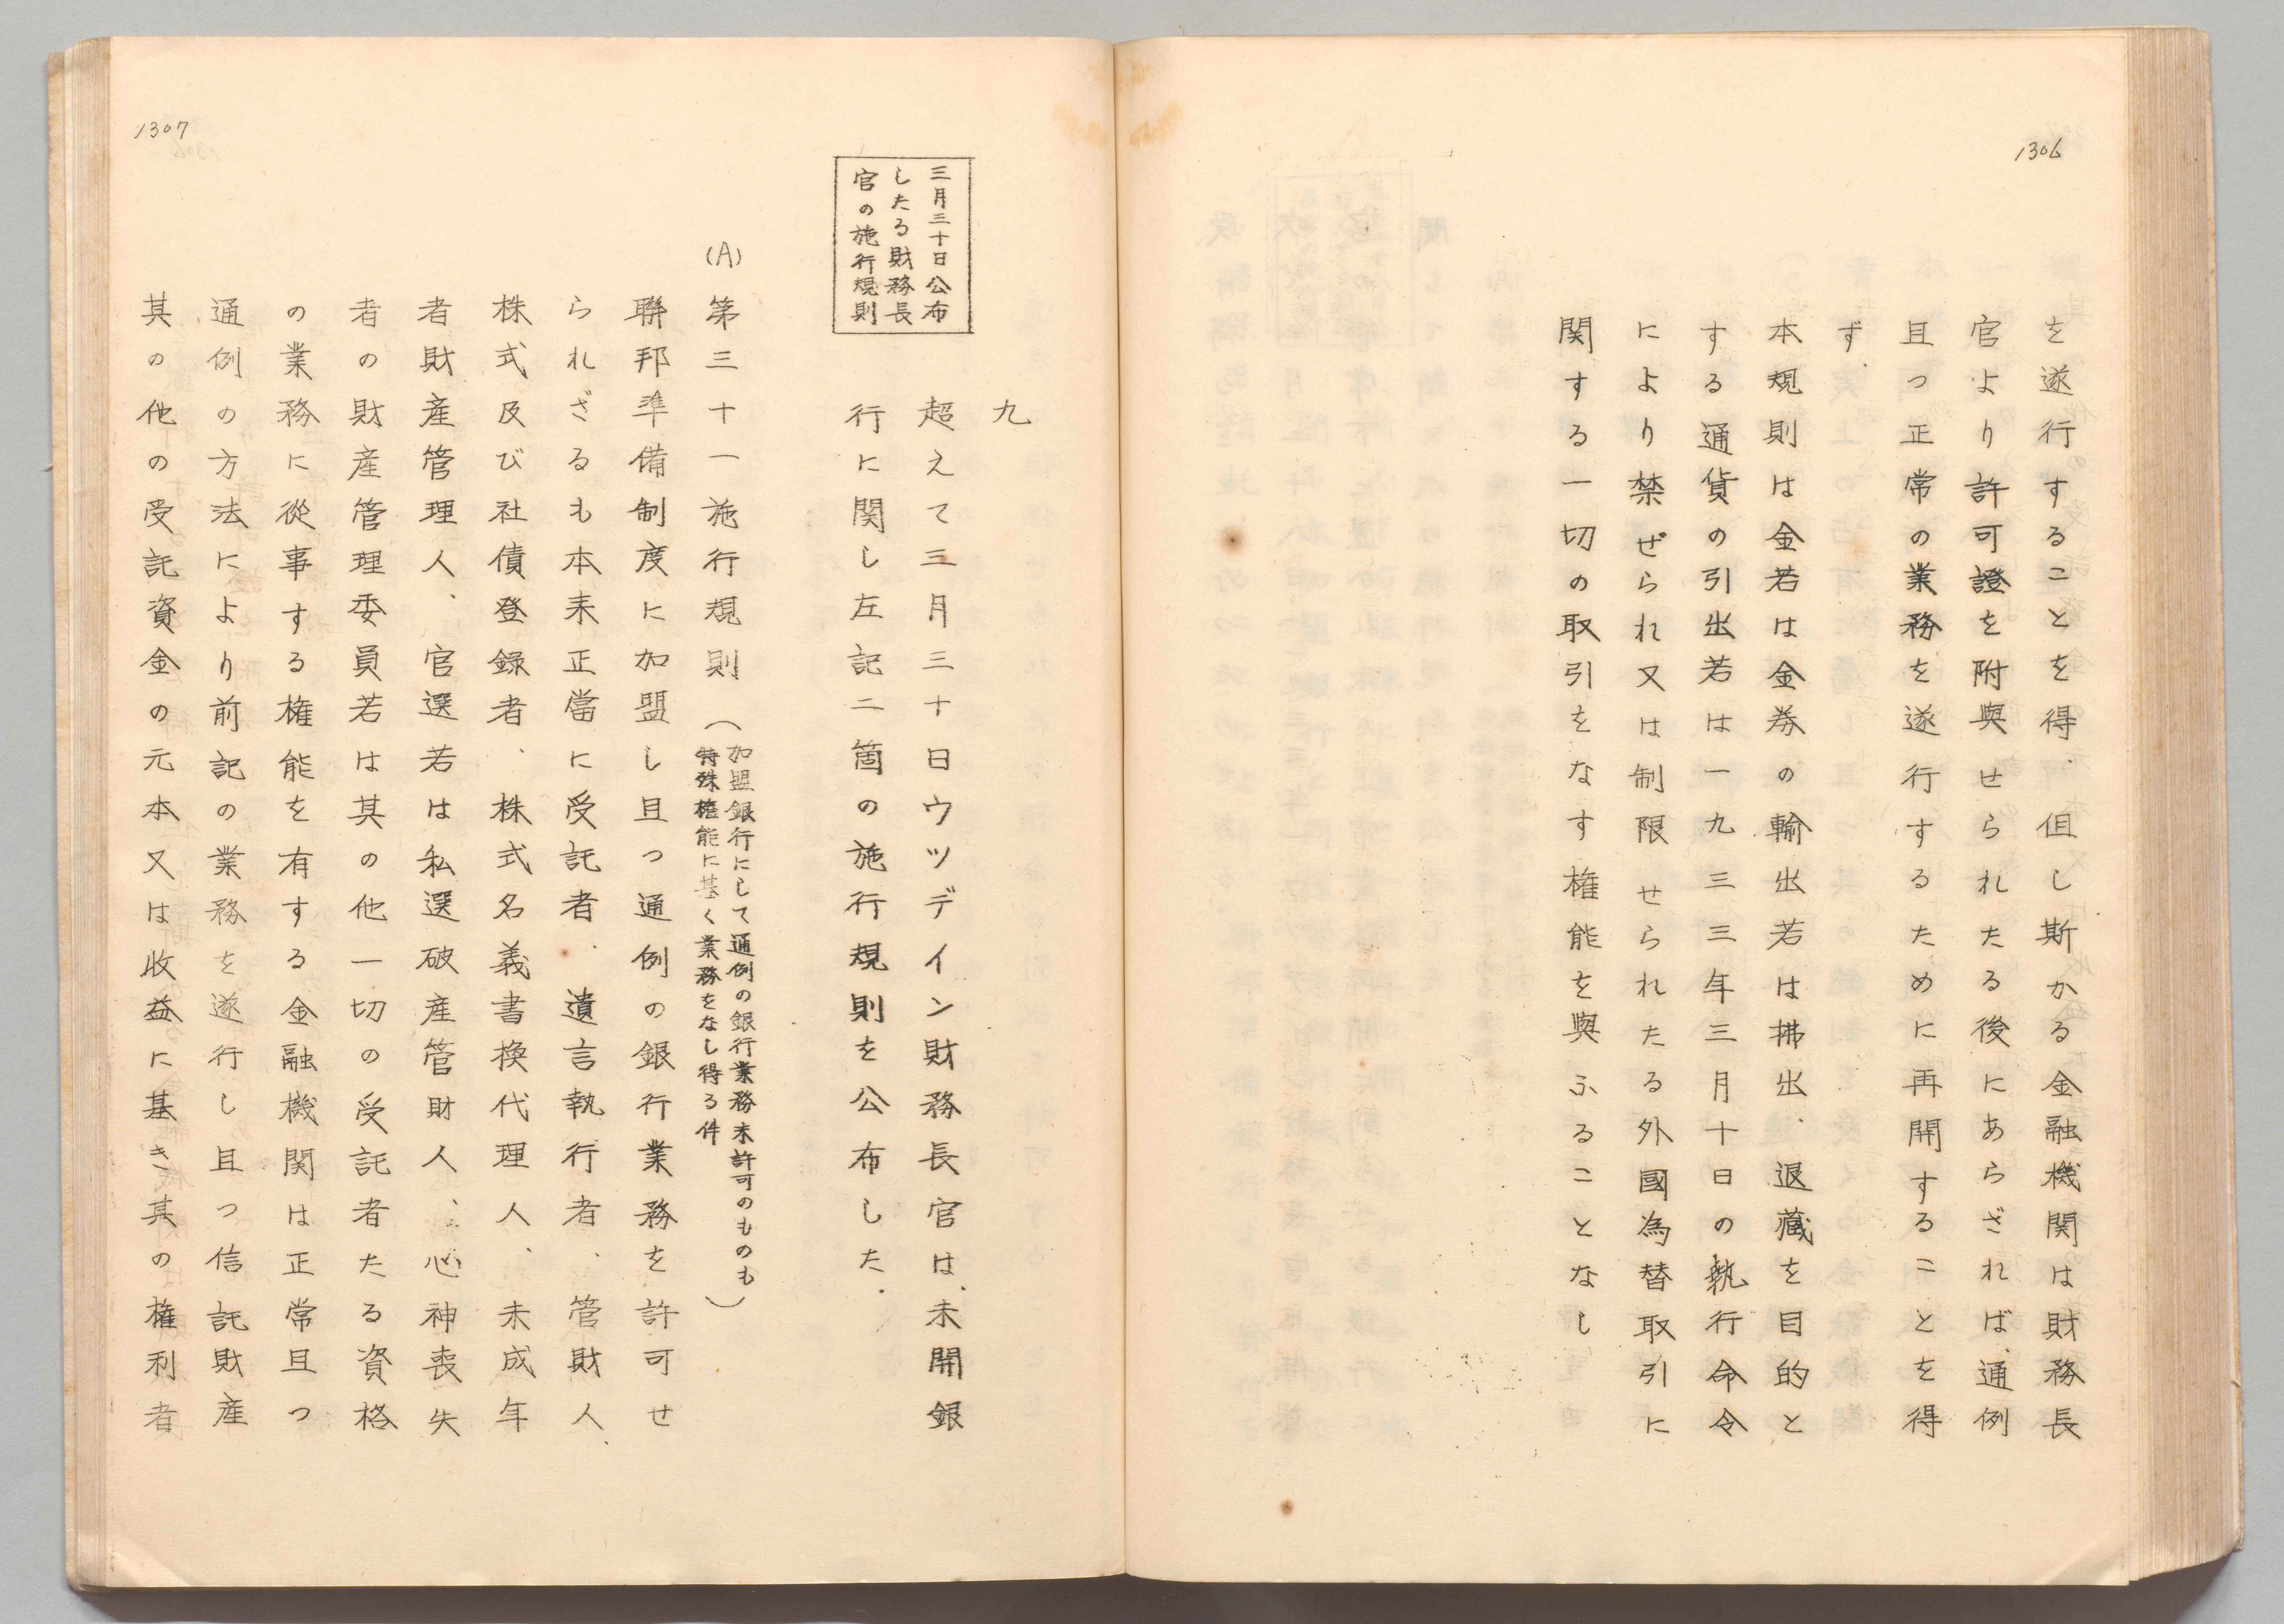 1306
を遂行することを得、但し斯かる金融機関は財務長
官より許可證を附與せられたる後にあらざれば、通例
且つ正常の業務を遂行するために再開することを得
ず、
本規則は金若は金券の輸出若は拂出、退藏を目的と
する通貨の引出若は一九三三年三月十日の執行命令
により禁ぜられ又は制限せられたる外國為替取引に
関する一切の取引をなす権能を與ふることなし
1307
三月三十日公布
したる財務長
官の施行規則
九
超えて三月三十日ウツデイン財務長官は、未開銀
行に関し左記二箇の施行規則を公布した、
(A)
第三十一施行規則(加盟銀行にして通例の銀行業務未許可のものも
特殊権能に基く業務をなし得る件)
聯邦準備制度に加盟し且つ通例の銀行業務を許可せ
られざるも本来正當に受託者、遺言執行者、管財人、
株式及び社債登録者、株式名義書換代理人、未成年
者財産管理人、官選若は私選破産管財人、心神喪失
者の財産管理委員若は其の他一切の受託者たる資格
の業務に從事する権能を有する金融機関は正常且つ
通例の方法により前記の業務を遂行し且つ信託財産
其の他の受託資金の元本又は收益に基き其の権利者